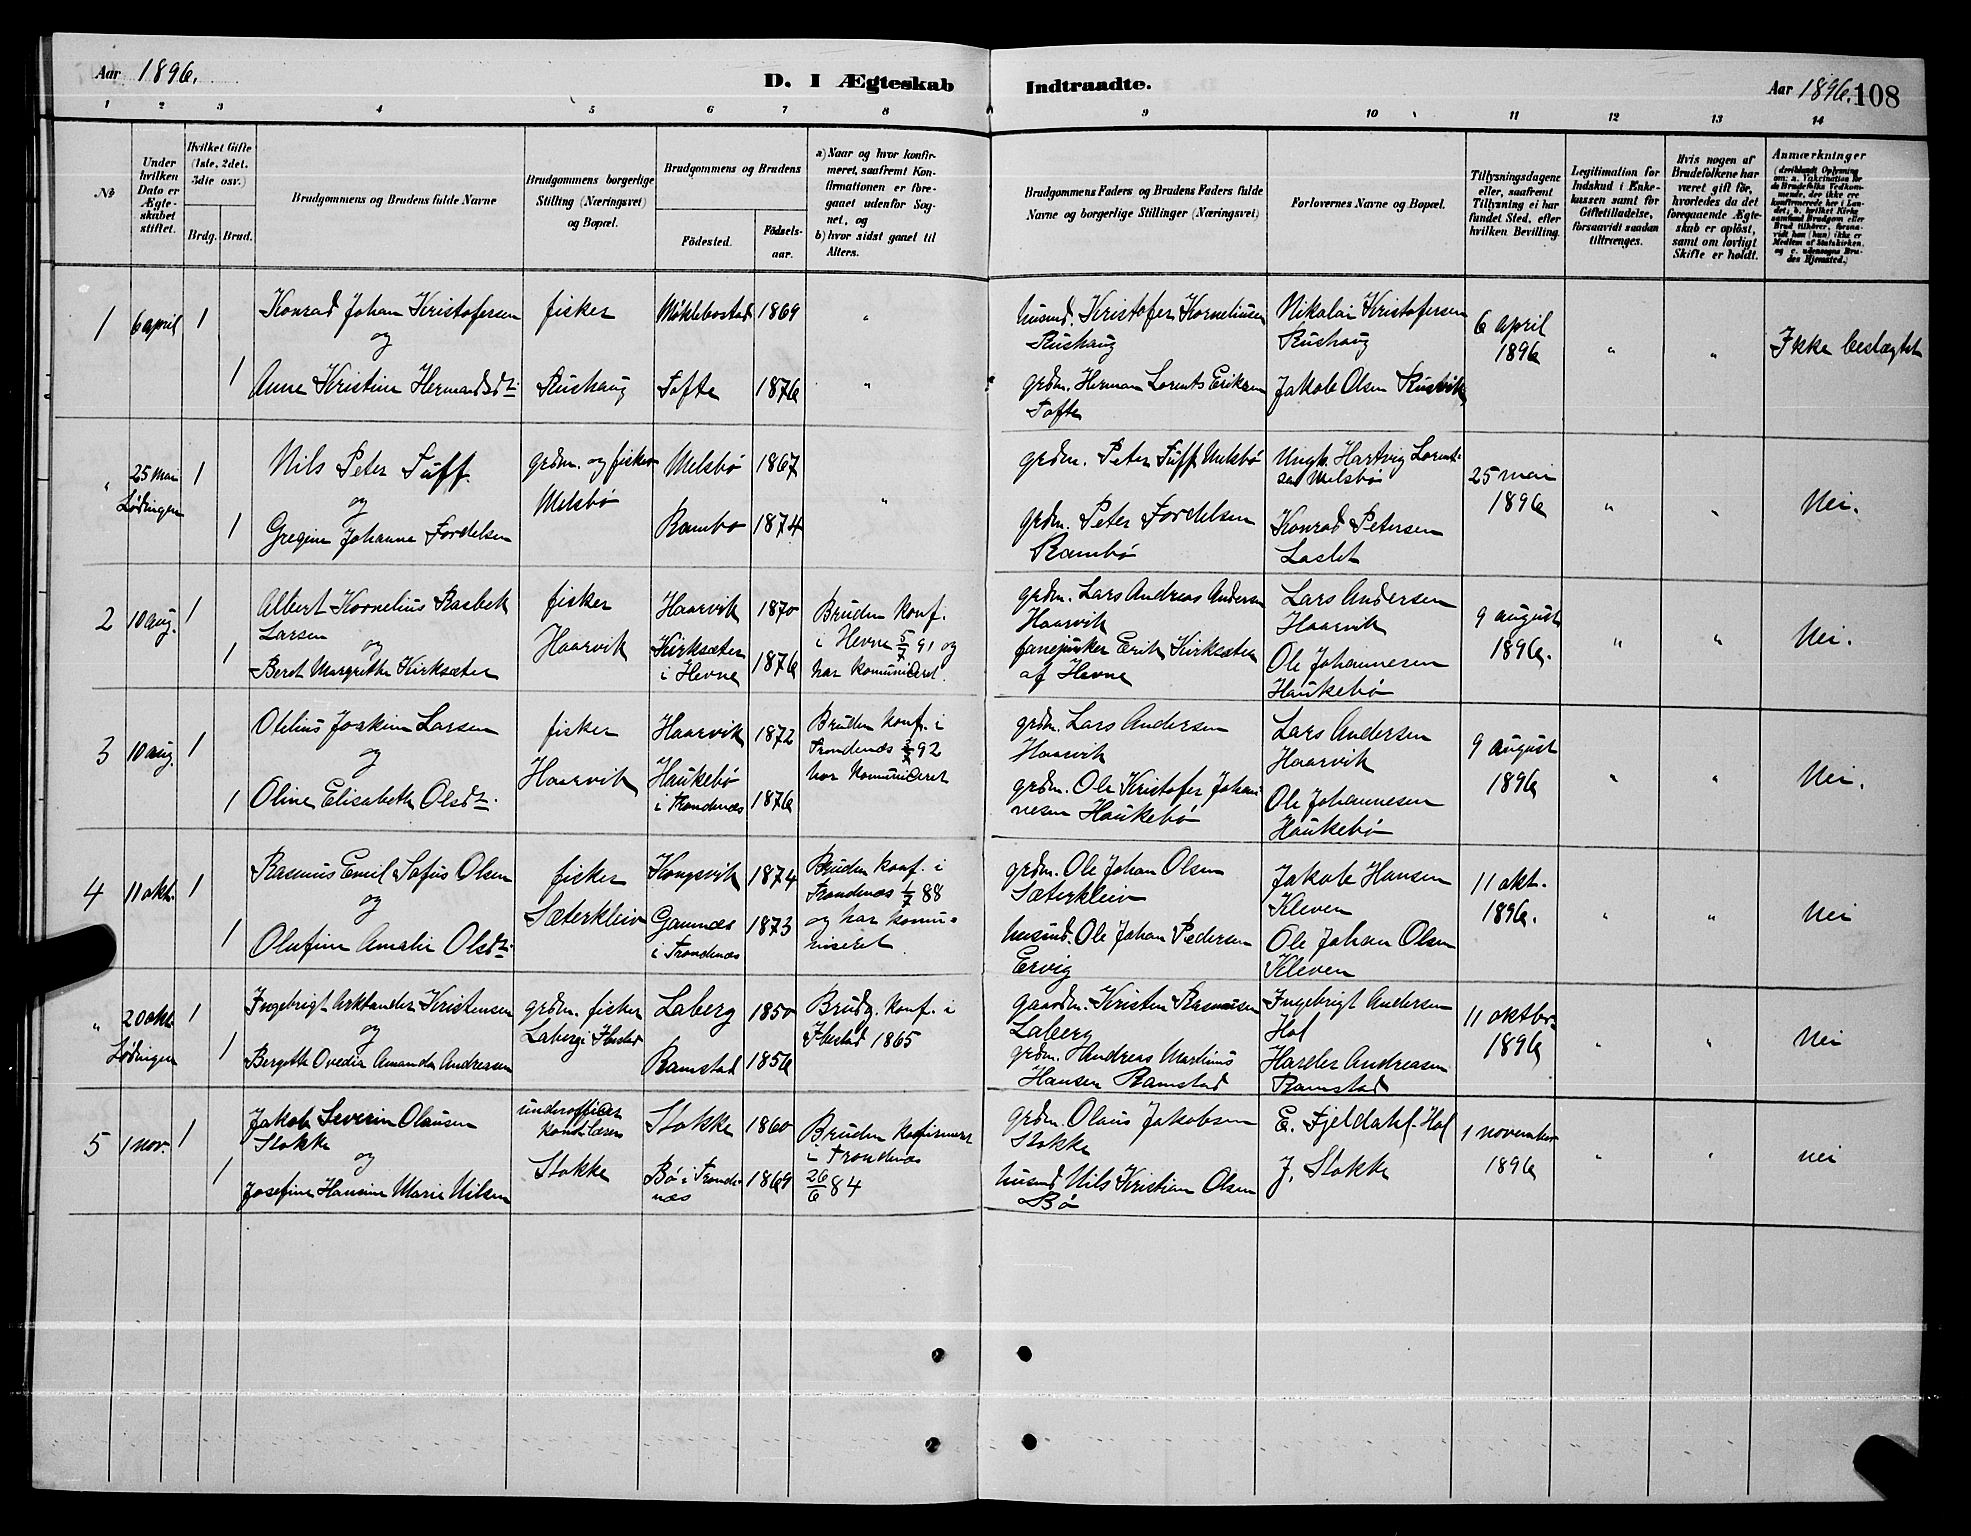 Aar 1896.
D. I Ægteskab Indtraadte.
Aar 1896. 108
1 2 3 4 5 6 7 8 9 10 11 12 13 14
No
Under hvilken Dato er Ægteskabet stiftet.
Hvilket Gifte (1ste, 2det, 3die osv.)
Brdg. Brud.
Brudgommens og Brudens fulde Navne
Brudgommens borgerlige Stilling (Næringsvei) og Bopæl.
Brudgommens og Brudens
Födested. Födselsaar.
a) Naar og hvor konfirmeret, saafremt Konfirmationen er foregaaet udenfor Sognet, og
b) hvor sidst gaaet til Alters.
Brudgommens Faders og Brudens Faders fulde Navne og borgerlige Stillinger (Næringsvei)
Forlovernes Navne og Bopæl.
Tillysningsdagene eller, saafremt Tillysning ei har fundet Sted, efter hvilken Bevilling
Legitimation for Indskud i Enkekassen samt för Giftetilladelse, forsaavidt saadan tiltrænges.
Hvis nogen af Brudefolkene har været gift för, hvorledes da det foregaaende Ægteskab er oplöst, samt om lovligt Skifte er holdt.
Anmærkninger
1 6 april 1
Konrad Johan Kristofersen
og
1 Anne Kristine Hermansdtr
fisker
Rushaug
Möklebostad 1869 "
Tofte 1876 "
husmd. Kristofer Korneliusen
Rushaug
grdm. Herman Lorents Eriksen
Tofte
Nikolai Kristofersen
Rushaug
Jakob Olsen Rusvik
6 april
1896
" "
Ikke beslægtet
" 25 mai 1
Lødingen
Nils Peter Tuff
og
1 Gregine Johanne Fordelsen
grdm. og fisker
Melsbø
Melsbø 1867
Rambø 1874
"
grdm. Peter Tuff Melsbø
grdm. Peter Fordelsen
Rambø
Ungk. Hartvig Lorentsen Melsbø
Konrad Petersen
Laslet
25 mai
1896
" "
Nei.
2 10 aug. 1
Albert Kornelius Rasbek
Larsen
og
1 Beret Margrethe Kirksæter
fisker
Haarvik
Haarvik 1870
Kirksæter
i Hevne 1876
Bruden konf.
i Hevne 5/7 91 og
har komuniceret.
grdm. Lars Andreas Andersen
Haarvik
fanejunker Erik Kirksæter
af Hevne
Lars Andersen
Haarvik
Ole Johannesen
Haukebø
9 august
1896.
" "
Nei.
3 10 aug. 1
Otelius Joakim Larsen
og
1 Oline Elisabeth Olsdtr.
fisker
Haarvik
Haarvik 1872
Haukebø
i Trondenæs 1876
Bruden konf. i
Trondenæs 92
har komuniceret
grdm. Lars Andersen
Haarvik
grdm. Ole Kristofer Johannesen Haukebø
Lars Andersen
Haarvik
Ole Johannesen
Haukebø
9 august
1896
" "
Nei.
4 11 okt. 1
Rasmus Emil Sofus Olsen
og
1 Olufine Amalie Olsdtr
fisker
Sæterkleiv
Kongsvik 1874
Gamnæs
i Trondenæs 1873
Bruden konf. i
Trondenæs 1/7 88
og har komuniseret
grdm. Ole Johan Olsen
Sæterkleiv
husmd. Ole Johan Pedersen
Ervig
Jakob Hansen
Kleven
Ole Johan Olsen
Kleven
11 okt.
1896.
" "
Nei
" 20 okt 1
Lødingen
Ingebrigt Arktander Kristensen
og
1 Bergithe Ovedia Amanda Andreasen
grdm. fisker
Laberg i Ibestad
Laberg 1850
Ramstad 1856
Brudg. konf. i
Ibestad 1865
gaardm. Kristen Rasmusen
Laberg
grdm. Andreas Martinus
Hansen Ramstad
Ingebrigt Andersen
Hol
Harder Andreasen
Ramstad
11 oktbr.
1896
" "
Nei
5 1 nov. 1
Jakob Severin Olausen
Stokke
og
1 Josefine Hansine Marie Nilsen
underofficer
Stokke
Stokke 1860
Bø i Trondenæs 1869
Bruden konfirmert
i Trondenæs
26/6 84
grdm. Olaus Jakobsen
Stokke
husmd Nils Kristian Olsen
Bø
E. Fjeldahl. Hol
J. Stokke
1 november
1896
" "
nei